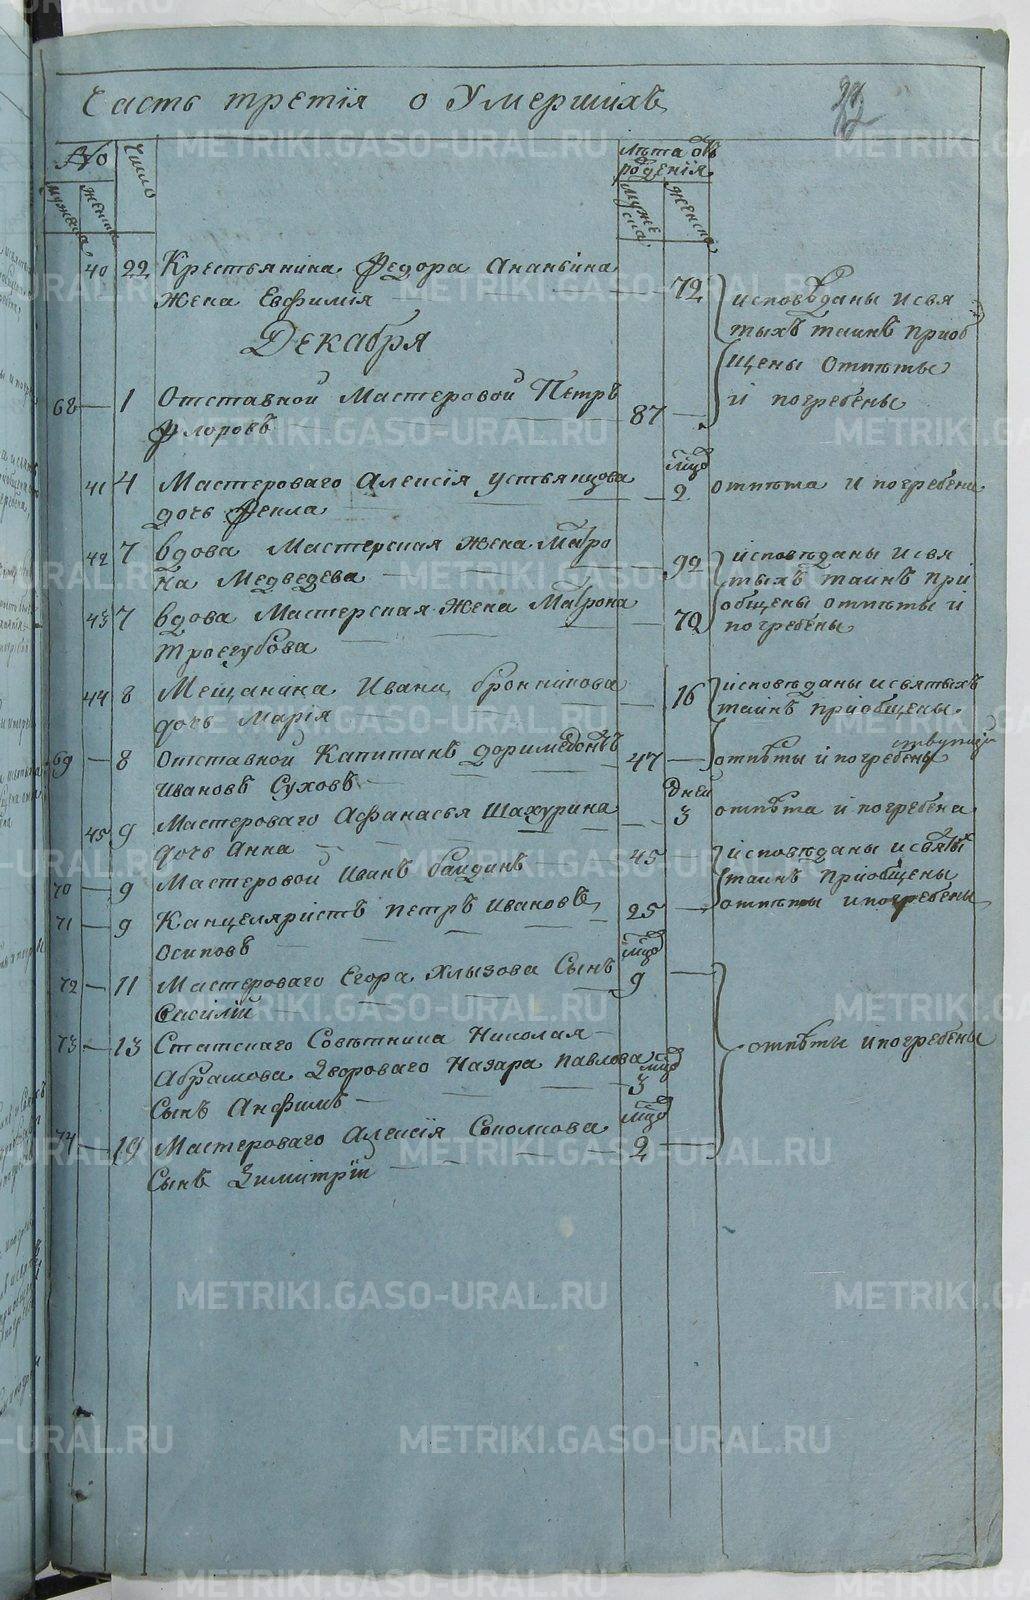 Часть третїя о Умершихъ
№ Число Лѣта отъ рожденїя
мужеска женска муже ска женска
40 22 Крестьянина Федора Ананьина
жена Евфимїя 72 исповѣданы и свя
тыхъ таинъ приоб
Декабря
щены отпѣты
и погребены
68 1 Отставной Мастеровой Петръ
Флоровъ 87
41 4 Мастероваго Алексїя Устьянцова мцов
дочь Фекла 2 отпѣта и погребена
42 7 вдова Мастерская жена Матро
на Медведева 92 исповѣданы и свя
тыхъ таинъ при
43 7 вдова Мастерская жена Матрона 70 общены отпѣты и
Троегубова погребены
44 8 Мещанина Ивана бронникова 16 исповѣданы и святыхъ
дочь Марїя таинъ прїобщены.
69 8 Отставной Капитанъ доримедонтъ 47 отпѣты и погребены
Ивановъ Суховъ дней
45 9 Мастероваго Афанасья Шахурина 3 отпѣта и погребена
дочь Анна
70 9 Мастеровой Иванъ баидинъ 45 исповѣданы и святыхъ
таинъ прїобщены
71 9 Канцеляристъ петръ Ивановъ 25 отпѣты и погребены
Осиповъ мцов
72 11 Мастероваго Егора Хлызова Сынъ 9
Василїй
73 13 Статскаго Совѣтника Николая отпѣты и погребены
Абрамова Двороваго Назара павлова мцов
Сынъ Анфимъ 3
мцов
74 19 Мастероваго Алексїя Соколкова 2
Сынъ Димитрїй
METRIKI.GASO-URAL.RU